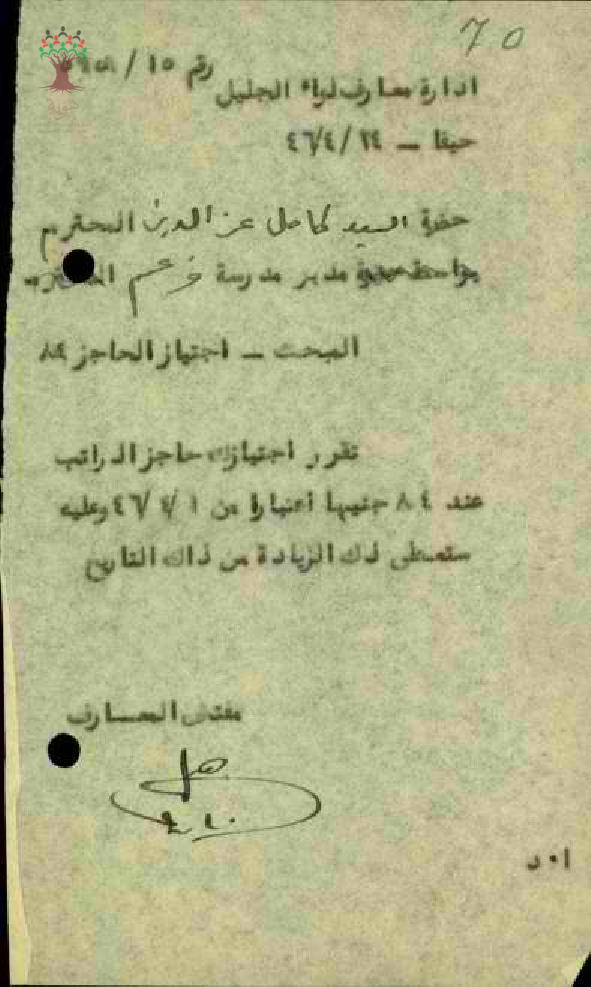 70
ادارة معارف لواء الجليل رقم ١٥ /
حيفا – ٢٤ /٤٦/٤
حضرة السيد كامل عز الدين المحترم
بواسطة مدير مدرسة المحترم
البحث – اجتياز الحاجز ٨٤
تقرر اجتيازك حاجز الراتب
عند ٨٤ جنيها اعتبارا من ٤٦/٤/١ وعليه
ستعطى لك الزيادة من ذاك التاريخ
مفتش المعارف
ا٠د